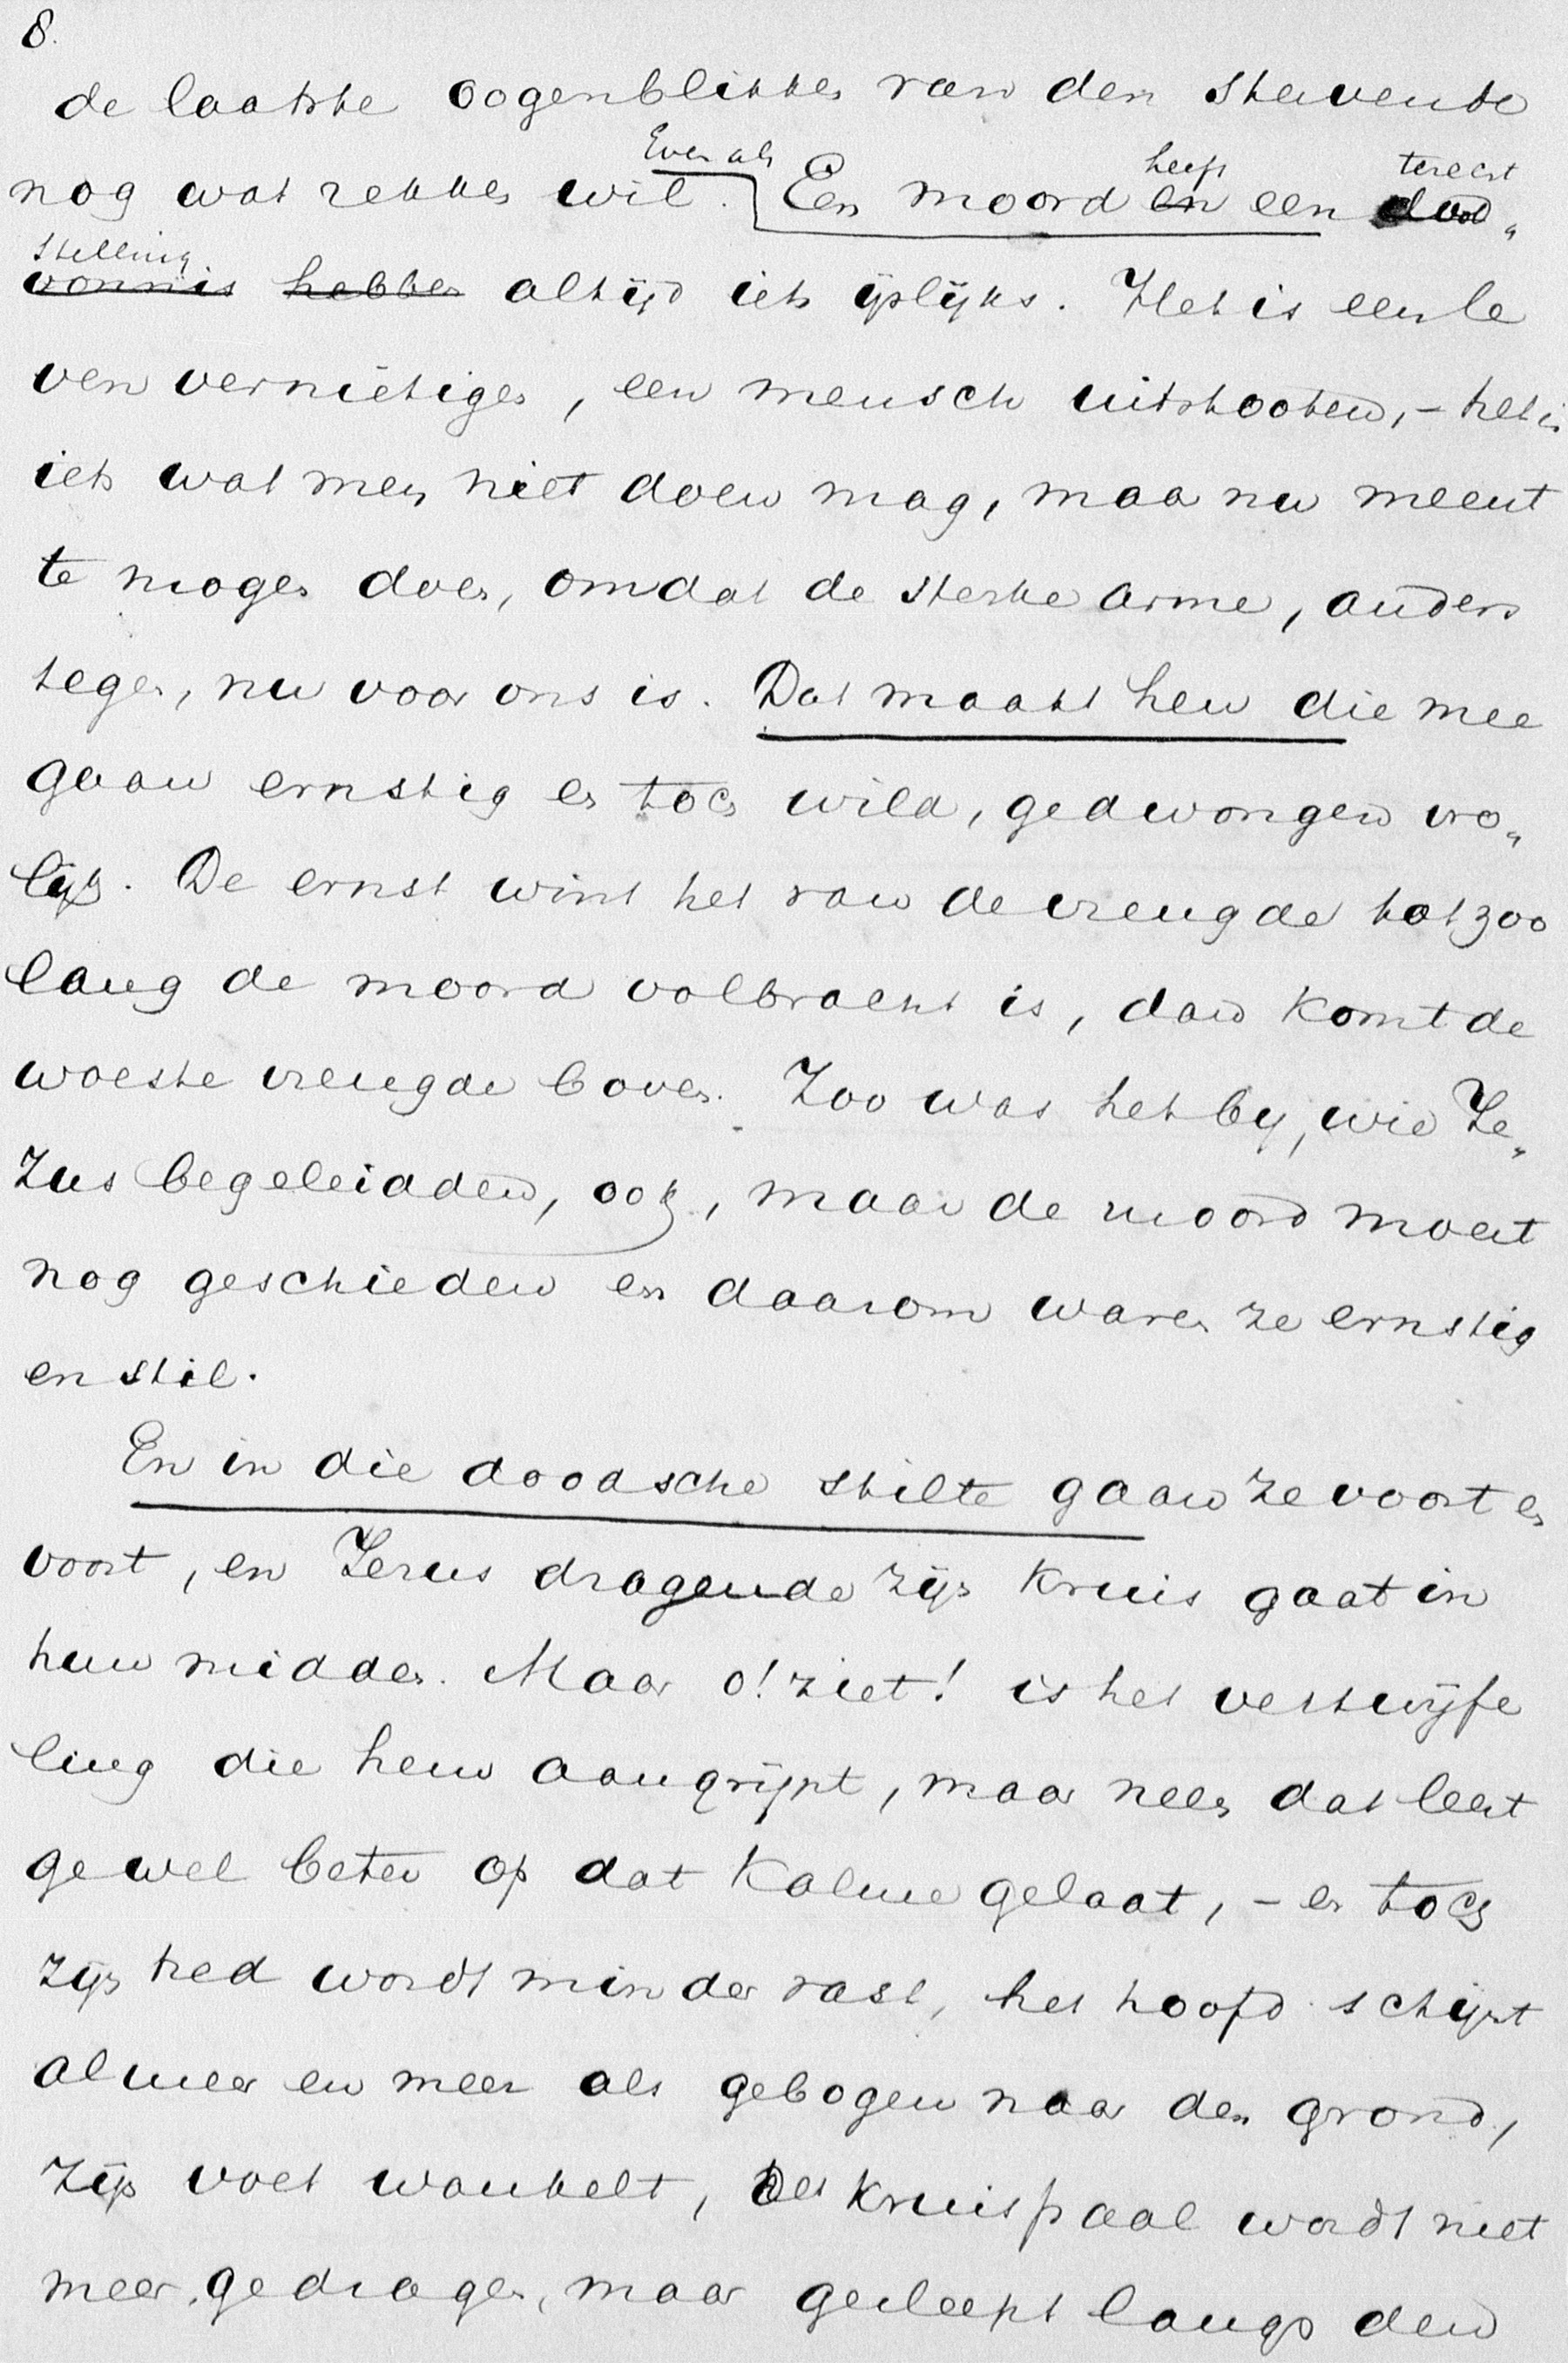 8.
de laatste oogenblikken van den stervende
Even als
nog wat rekken wil. Een moord heeft en een terecht dood„
stelling
vonnis hebben altijd iets ijslijks. Het is een le
ven vernietigen, een mensch uitstooten, – het is
iets wat men niet doen mag, maar nu meent
te mogen doen, omdat de sterke arme, anders
tegen, nu voor ons is. Dat maakt hen die mee
gaan ernstig en toch wild, gedwongen vro„
lijk. De ernst wint het van de vreugde totzoo
lang de moord volbracht is, dan komt de
woeste vreugde boven. Zoo was het bij, wie Je„
zus begeleidden, ook, maar de moord moest
nog geschieden en daarom waren ze ernstig
en stil.
En in die doodsche stilte gaan ze voort en
voort, en Jezus dragende zijn kruis gaat in
hun midden. Maar o! ziet! is het vertwijfe
ling die hem aangrijpt, maar neen dat leest
ge wel beter op dat kalme gelaat, – en toch
zijn tred wordt minder vast, het hoofd schijnt
al meer en meer als gebogen naar den grond,
zijn voet wankelt, het kruispaal wordt niet
meer gedragen, maar gesleept langs den